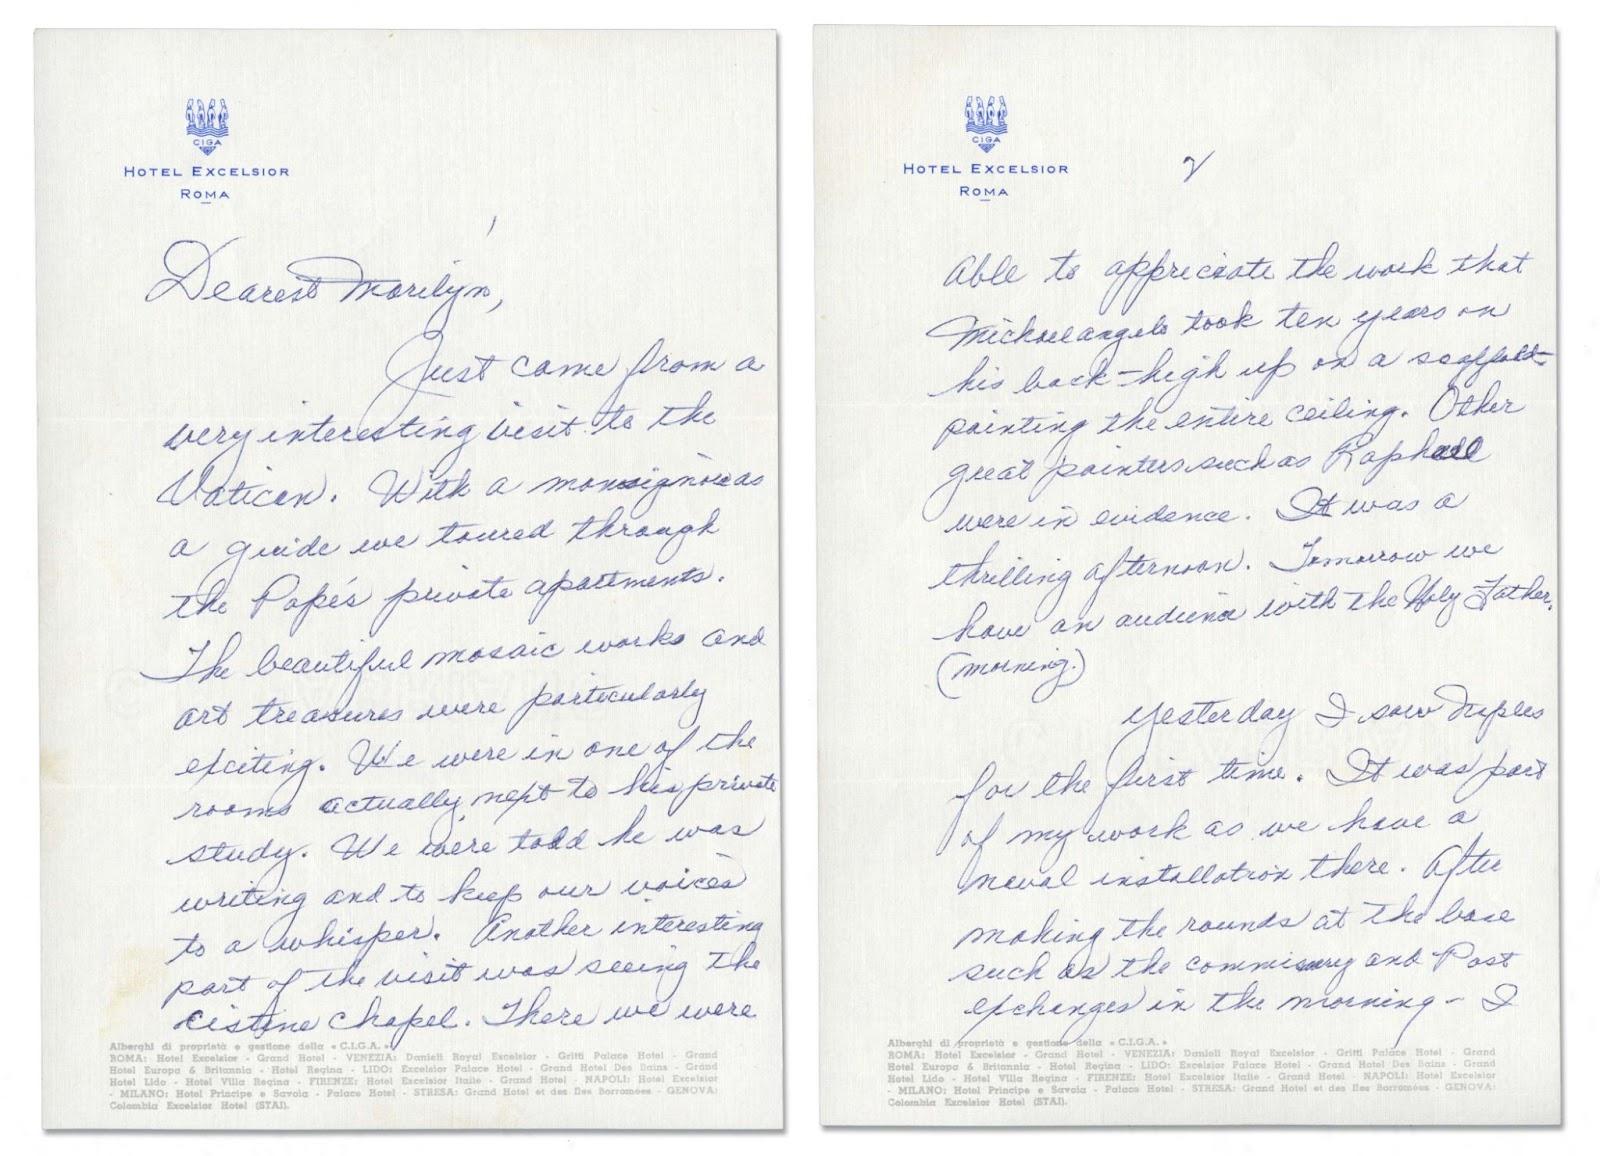 CIGA
HOTEL EXCELSIOR
ROMA
1
Dearest Marilyn,
Just came from a
very interesting visit to the
Vatican. With a monsignor as
a guide we toured through
the Pope's private apartments.
The beautiful mosaic works and
art treasures were particularly
exciting. We were in one of the
rooms actually next to his private
study. We were told he was
writing and to keep our voices
to a whisper. Another interesting
part of the visit was seeing the
cistine chapel. There we were
Alberghi di proprietà e gestione della « C.I.G.A. »
ROMA: Hotel Excelsior - Grand Hotel - VENEZIA: Danieli Royal Excelsior - Gritti Palace Hotel - Grand
Hotel Europa & Britannia - Hotel Regina - LIDO: Excelsior Palace Hotel - Grand Hotel Des Bains - Grand
Hotel Lido - Hotel Villa Regina - FIRENZE: Hotel Excelsior Italie - Grand Hotel - NAPOLI: Hotel Excelsior
- MILANO: Hotel Principe e Savoia - Palace Hotel - STRESA: Grand Hotel et des Iles Borromées - GENOVA:
Colombia Excelsior Hotel (STAI).
CIGA
HOTEL EXCELSIOR
ROMA
2
able to appreciate the work that
Michaelangelo took ten years on
his back - high up on a scaffold -
painting the entire ceiling. Other
great painters such as Raphael
were in evidence. It was a
thrilling afternoon. Tomorrow we
have an audience with the Holy Father.
(morning.)
Yesterday I saw Naples
for the first time. It was part
of my work as we have a
naval installation there. After
making the rounds at the base
such as the commissary and Post
exchanges in the morning - I
Alberghi di proprietà e gestione della « C.I.G.A. »
ROMA: Hotel Excelsior - Grand Hotel - VENEZIA: Danieli Royal Excelsior - Gritti Palace Hotel - Grand
Hotel Europa & Britannia - Hotel Regina - LIDO: Excelsior Palace Hotel - Grand Hotel Des Bains - Grand
Hotel Lido - Hotel Villa Regina - FIRENZE: Hotel Excelsior Italie - Grand Hotel - NAPOLI: Hotel Excelsior
- MILANO: Hotel Principe e Savoia - Palace Hotel - STRESA: Grand Hotel et des Iles Borromées - GENOVA:
Colombia Excelsior Hotel (STAI).